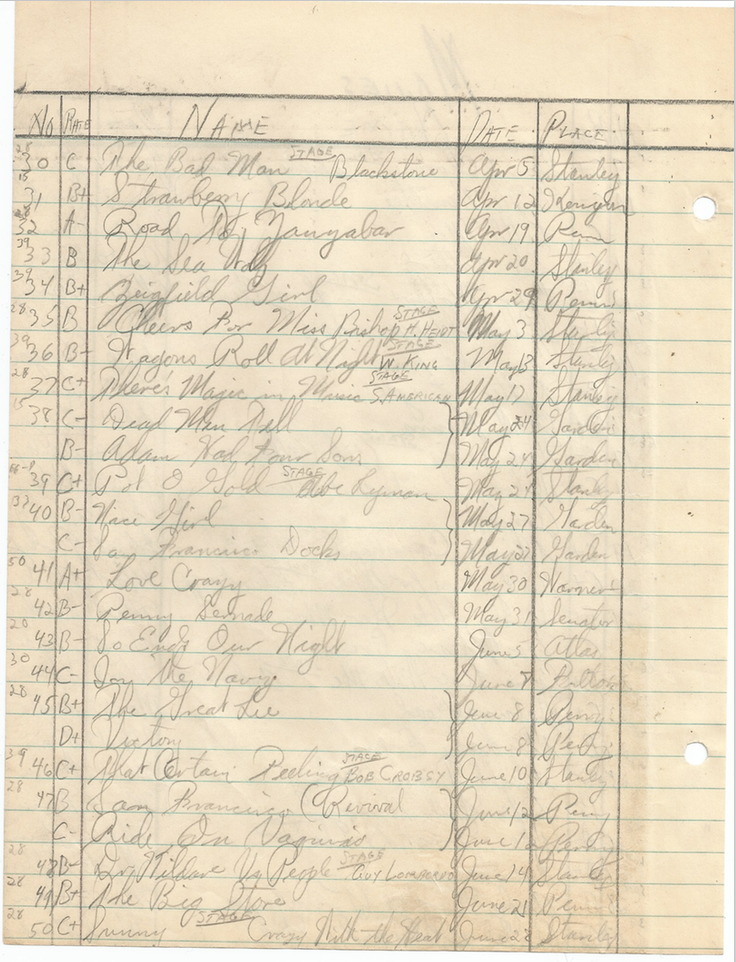 No RATE NAME DATE PLACE
28 30 C- The Bad Man STAGE Blackstone Apr 5 Stanley
15 31 B+ Strawberry Blonde Apr 12 Kenyon
28 32 A- Road To Zanzabar Apr 19 Penn
39 33 B The Sea Wolf Apr 20 Stanley
39 34 B+ Zeigfield Girl Apr 29 Penn
28 35 B Cheers For Miss Bishop STAGE H. HEIDT May 3 Stanley
39 36 B- Wagons Roll At Night STAGE W. KING May 13 Stanley
28 37 C+ There's Magic in Music STAGE S. AMERICAN May 17 Stanley
15 38 C- Dead Men Tell May 24 Garden
B- Adam Had Four Sons May 24 Garden
39 C+ Pot O Gold STAGE Abe Lyman May 24 Stanley
40 B- Nice Girl May 27 Garden
C- San Francisco Docks May 27 Garden
50 41 A+ Love Crazy May 30 Warners
28 42 B- Penny Sernade May 31 Senator
20 43 B- So Ends Our Night June 5 Atlas
30 44 C- In the Navy June 7 Fulton
28 45 B+ The Great Lie June 8 Perry
D+ Victory June 8 Perry
39 46 C+ That Certain Feeling STAGE BOB CROBSY June 10 Stanley
28 47 B San Francisco (Revival June 12 Perry
C- Ride On Vaquiras June 12 Perry
28 48 B- Dr. Kildare Vs People STAGE GUY LOMBARDO June 14 Stanley
28 49 B+ The Big Store June 21 Penn
28 50 C+ Sunny STAGE Crazy With the Heat June 28 Stanley